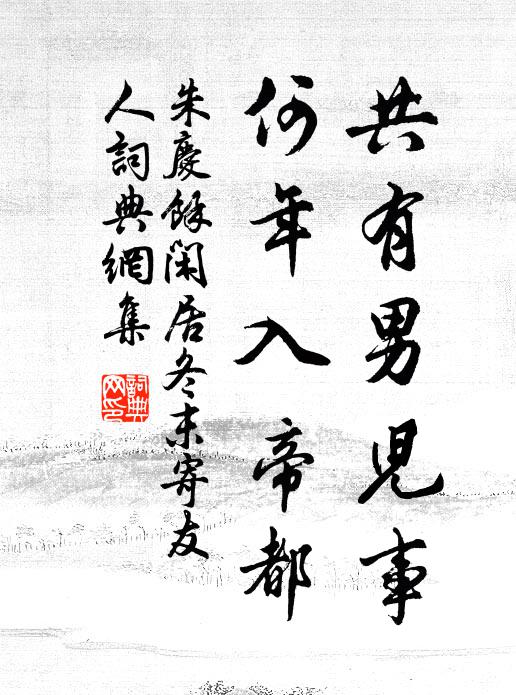 共有男兒事
何年入帝都
朱慶餘閑居冬末寄友
人詞典網集
詞典
网印